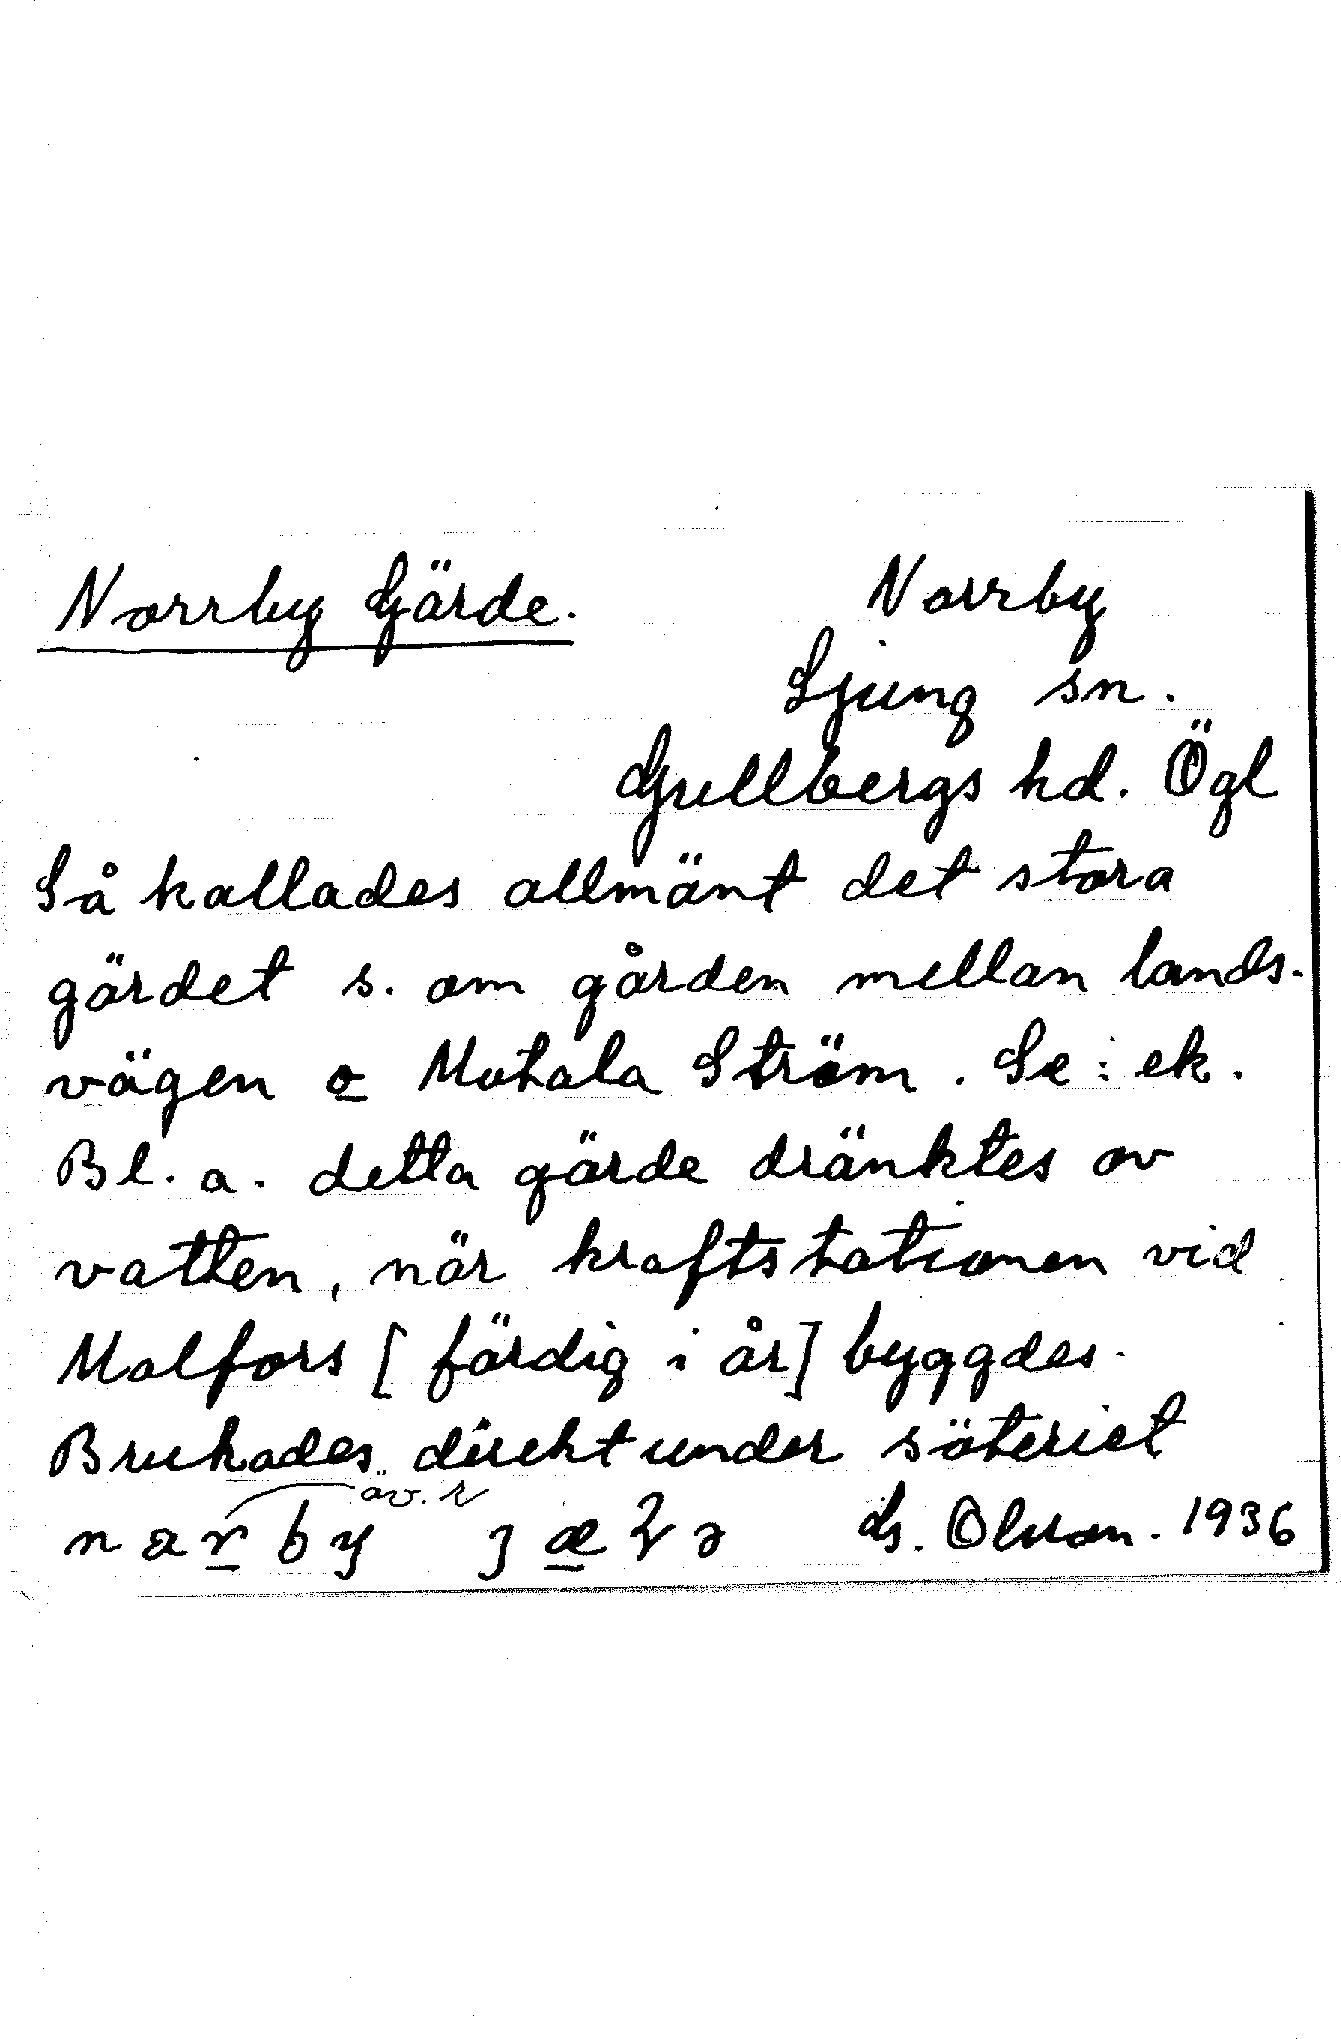 Norrby Gärde.
Norrby
Ljung sn.
Gullbergs hd. Ögl
Så kallades allmänt det stora
gärdet s. om gården mellan lands-
vägen o Motala Ström. Se: ek.
Bl. a. detta gärde dränktes av
vatten, när kraftstationen vid
Malfors [färdig i år] byggdes.
Brukades direkt under säteriet
äv. r
G. Olson. 1936